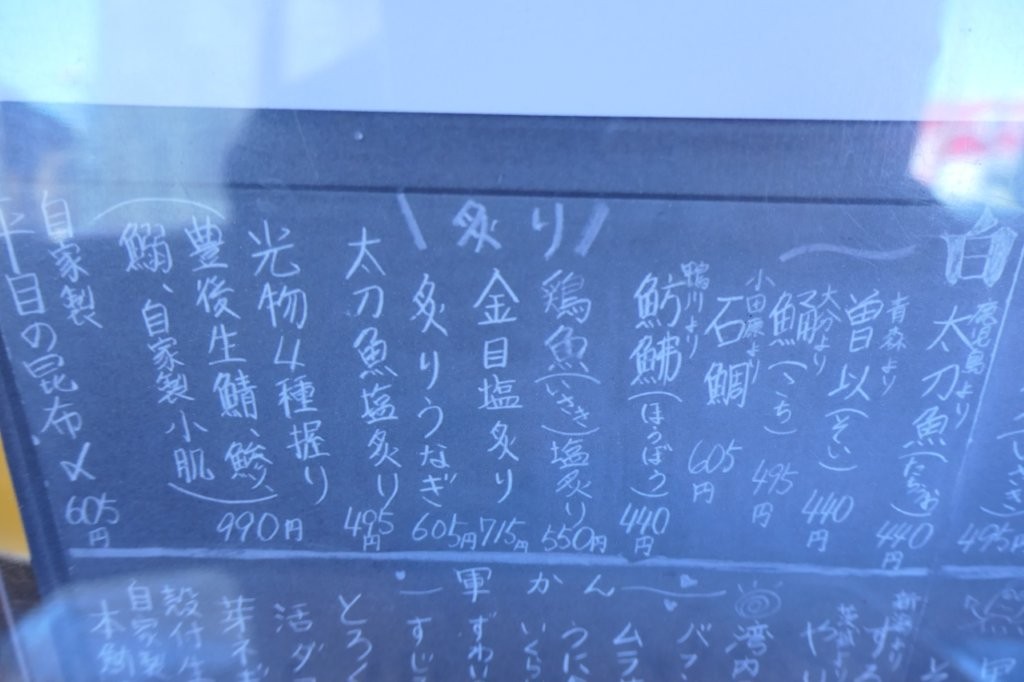 さき)
495円
白
鹿児島より
太刀魚(たちお)
440円
青森より
曽以(そい)
440円
大分より
鯒(こち)
495円
小田原より
石鯛
605円
鴨川より
魴鮄(ほうぼう)
440円
炙り
鶏魚(いさき)塩炙り
550円
金目塩炙り
715円
炙りうなぎ
605円
太刀魚塩炙り
495円
光物4種握り
(豊後生鯖、鯵、
鰯、自家製小肌)
990円
自家製
平目の昆布〆
605円
新潟より
茨城より
やり
湾内
軍かん
ムラ
うに
いくら
ずわい
すじ
とろく
活ダ
芽ネギ
殻付生
自家製
本